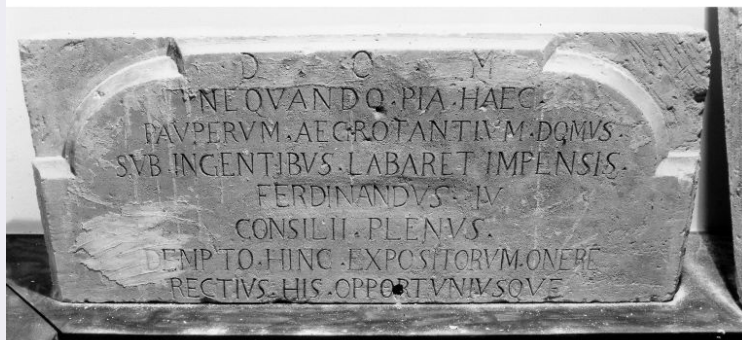 D · O · M
NE QVANDO · PIA · HAEC ·
PAVPERVM · AEGROTANTIVM · DOMVS ·
SVB INGENTIBVS · LABARET IMPENSIS ·
FERDINANDVS · IV
CONSILII · PLENVS ·
DEMPTO · HINC · EXPOSITORVM · ONERE
RECTIVS · HIS · OPPORTVNIVSQVE